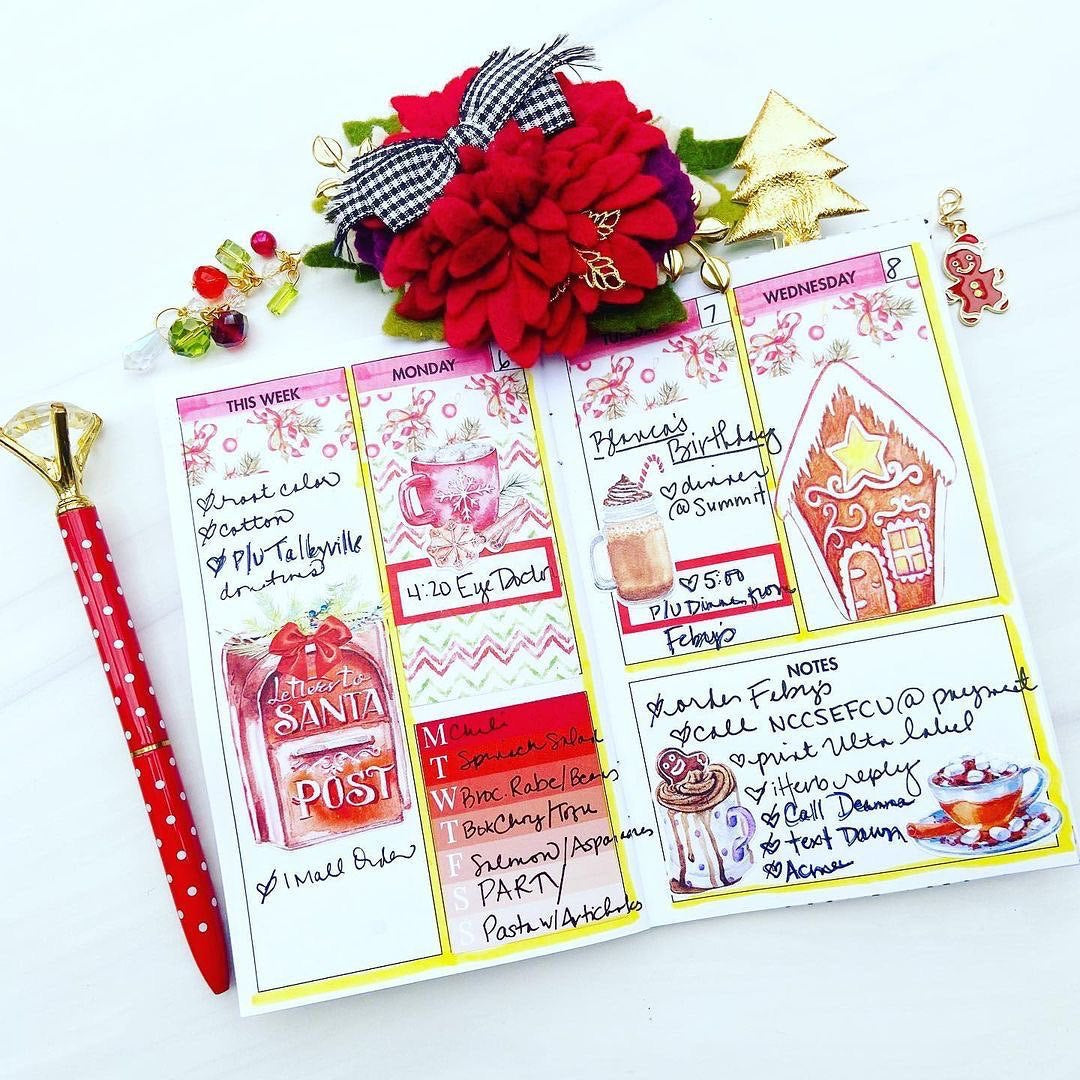 THIS WEEK
root color
cotton
P/U Talleyville
donations
Letters to
SANTA
POST
1 Mall Order
MONDAY
6
4:20 Eye Doctor
M Chili
T Spinach Salad
W Broc. Rabe/Beans
T Bok Choy/Tofu
F Salmon/
S PARTY
S Pasta w/Artichokes
7
Bianca's
Birthday
dinner
@Summit
5:00
P/U Dinner from
Feby's
WEDNESDAY
8
NOTES
order Feby's
call NCCSEFCU@ payment
print Ulta label
iHerb reply
Call Deanna
text Dawn
Acme